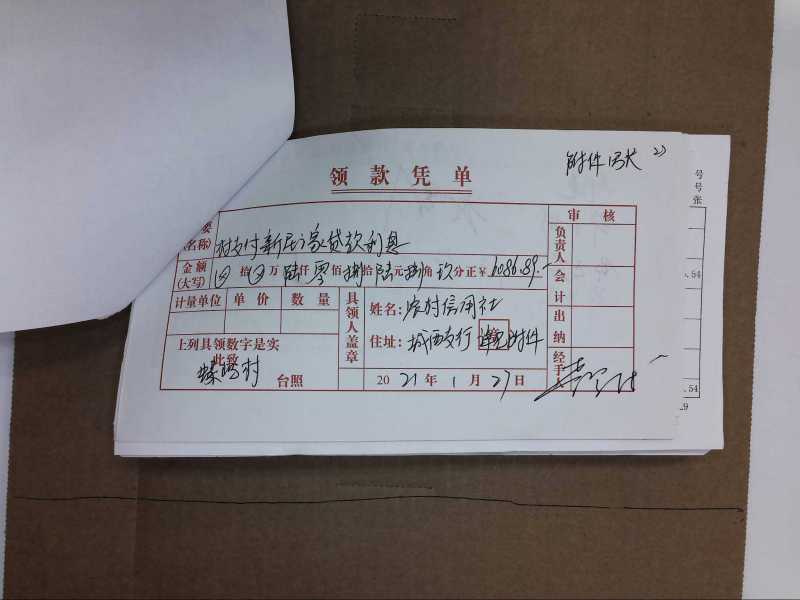 附件 2)
号
号
张
领款凭单
要
(名称) 村支付新居家贷款利息
审核
负责人
金额
(大写) 拾 万 陆仟 零佰 捌拾 陆元 捌角 玖分 正 ¥ 6086.89
.54
会计
计量单位 单价 数量
具领人盖章
姓名: 农村信用社
住址: 城西支行 详见附件
出纳
上列具领数字是实
此致
村 台照
2021年1月27日
经手
.54
.9